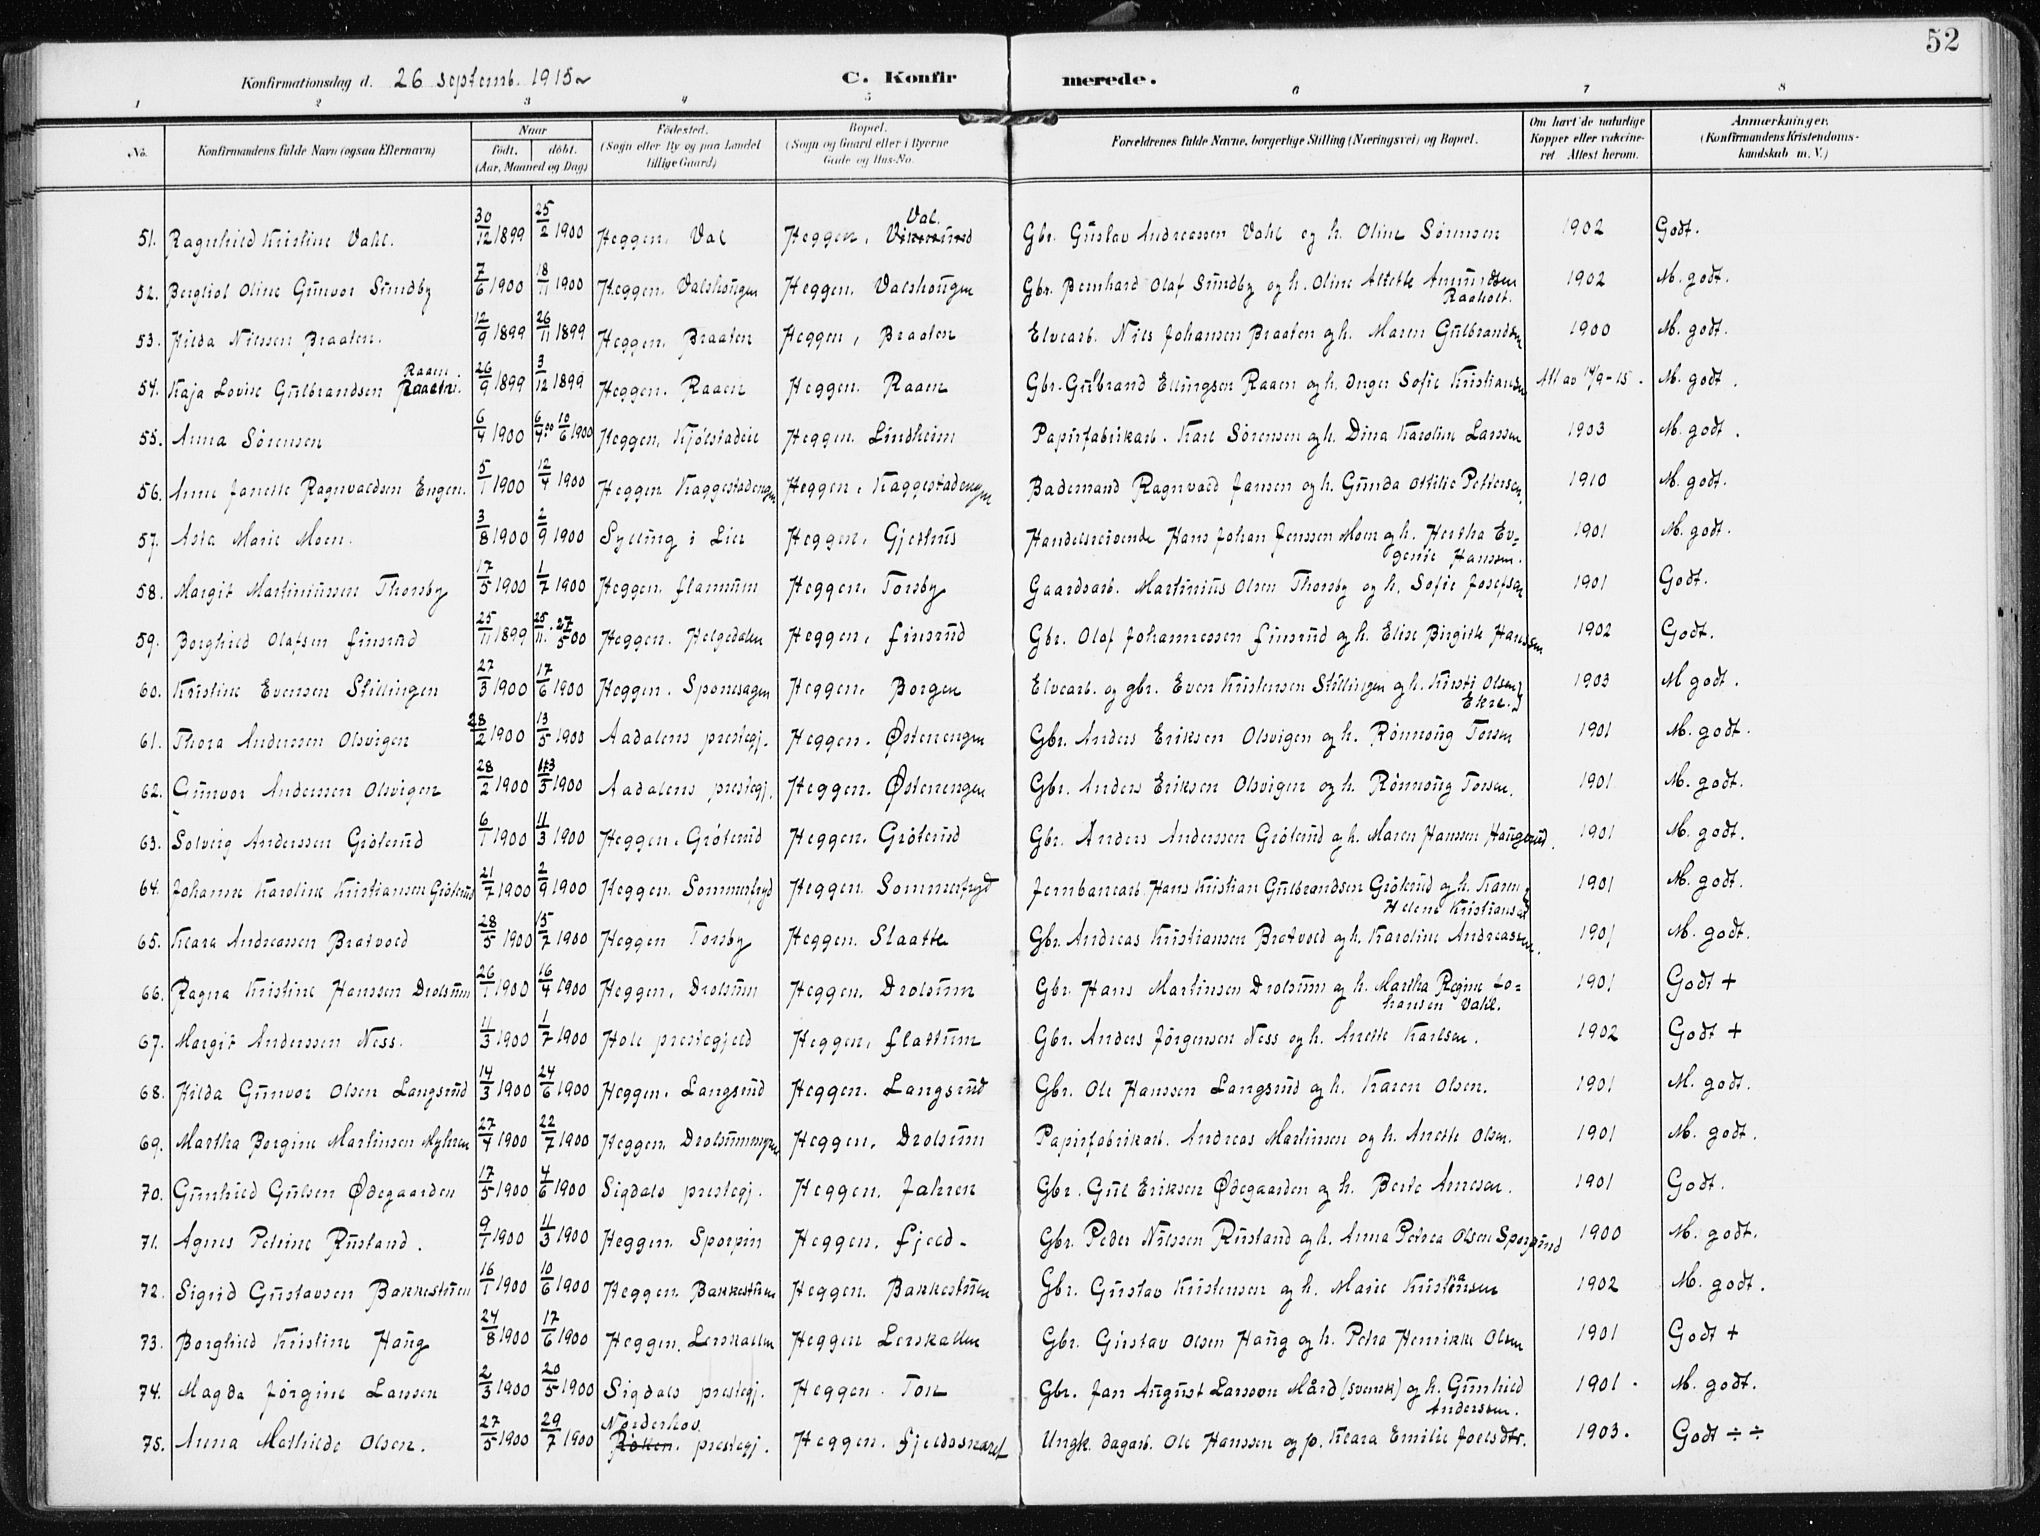 52
Konfirmationsdag d. 26 septemb. 1915
C. Konfirmerede.
1 2 3 4 5 6 7 8
No. Konfirmandens fulde Navn (ogsaa Efternavn) Naar født. døbt. (Aar, Maaned og Dag) Fødested. (Sogn eller By og paa Landet tillige Gaard) Bopæl. (Sogn og Gaard eller i Byerne Gade og Hus-No. Foreldrenes fulde Navne, borgerlige Stilling (Næringsvei) og Bopæl. Om havt de naturlige Kopper eller vakcineret Attest herom. Anmærkninger. (Konfirmandens Kristendomskundskab m. V.)
51. Ragnhild Kristine Vahl. 30/12 1899 25/2 1900 Heggen, Val Heggen, Vikersund Val. Gbr. Gustav Andreassen Vahl og h. Oline Sørensen 1902 Godt.
52. Bergliot Oline Gunvor Sundby 7/6 1900 18/11 1900 Heggen. Valshougen Heggen. Valshougen Gbr. Bernhard Olaf Sundby og h. Oline Alette Amundsen Raaholt. 1902 M. godt.
53. Hilda Nilssen Braaten. 12/9 1899 26/11 1899 Heggen. Braaten Heggen, Braaten Elvearb. Nils Johansen Braaten og h. Maren Gulbrandsen 1900 M. godt.
54. Kaja Lovise Gulbrandsen Raaen 26/9 1899 3/12 1899 Heggen. Raaen Heggen. Raaen Gbr. Gulbrand Ellingsen Raaen og h. Inger Sofie Kristiansen Att av 14/9-15. M. godt.
55. Anna Sørensen 6/4 1900 6/4 00 10/6 1900 Heggen, Kjølstadeie Heggen. Lindheim Papirfabrikarb. Karl Sørensen og h. Dina Karoline Larssen 1903 M. godt.
56. Anne Janette Ragnvaldsen Engen. 5/1 1900 12/4 1900 Heggen Kaggestadengen Heggen, Kaggestadengen Bademand Ragnvald Jansen og h. Gunda Otilie Pettersen 1910 M. godt.
57. Asta Marie Moen. 3/8 1900 2/9 1900 Sylling i Lier Heggen, Gjesthus Handelsreisende Hans Johan Jenssen Moen og h. Hertha Evgenie Hanssen. 1901 M. godt.
58. Margit Martiniussen Thorsby 17/5 1900 1/7 1900 Heggen. Flannum Heggen. Torsby Gaardsarb. Martinius Olsen Thorsby og h. Sofie Josefsen 1901 Godt.
59. Borghild Olafsen Finsrud 25/11 1899 25/11. 27/5 00 Heggen. Helgedalen Heggen, Finsrud Gbr. Olaf Johannessen Finsrud og h. Elise Birgitte Hanssen 1902 Godt.
60. Kristine Evensen Stillingen 27/3 1900 17/6 1900 Heggen. Sponesagen Heggen, Borgen Elvearb. og gbr. Even Kristensen Stillingen og h. Kirsti Olsen Ekre. 1903 M godt.
61. Thora Anderssen Olsvigen 28/2 1900 13/5 1900 Aadalens prestegj. Heggen. Østenengen Gbr. Anders Eriksen Olsvigen og h. Rønnoug Torsen 1901 M. godt.
62. Gunvor Anderssen Olsvigen 28/2 1900 13/5 1900 Aadalens prestegj. Heggen. Østenengen Gbr. Anders Eriksen Olsvigen og h. Rønnoug Torsen. 1901 M. godt.
63. Solveig Anderssen Grøterud 6/1 1900 11/3 1900 Heggen. Grøterud Heggen. Grøterud Gbr. Anders Anderssen Grøterud og h. Maren Hansen Haugerud. 1901 M. godt.
64. Johanne Karoline Kristiansen Grøterud 21/7 1900 2/9 1900 Heggen. Sommerfryd Heggen. Sommerfryd Jernbanearb. Hans Kristian Gulbrandsen Grøterud og h. Karen Helene Kristiansen 1901 M. godt.
65. Klara Andreassen Bratvold 28/5 1900 15/7 1900 Heggen Torsby Heggen. Slaatte Gbr. Andreas Kristiansen Bratvold og h. Karoline Andreassen. 1901 M. godt.
66. Ragna Kristine Hanssen Drolsum 26/1 1900 16/4 1900 Heggen. Drolsum Heggen. Drolsum Gbr. Hans Martinsen Drolsum og h. Martha Regine Johansen Vahl. 1901 Godt +
67. Margit Anderssen Ness. 11/3 1900 1/7 1900 Hole prestegjeld Heggen, Flattum Gbr. Anders Jørgensen Ness og h. Anette Karlsen. 1902 Godt +
68. Hilda Gunvor Olsen Langsrud 14/3 1900 24/6 1900 Heggen. Langsrud Heggen. Langsrud Gbr. Ole Hanssen Langsrud og h. Karen Olsen. 1901 M. godt.
69. Martha Bergine Martinsen Myhren 27/4 1900 22/7 1900 Heggen. Drolsummyren Heggen. Drolsum Papirfabrikarb. Andreas Martinsen og h. Anette Olsen. 1901 M. godt.
70. Gunhild Gulsen Ødegaarden 17/5 1900 4/6 1900 Sigdals prestegj. Heggen. Jahren Gbr. Gul Eriksen Ødegaarden og h. Berte Arnesen. 1901 Godt.
71. Agnes Petrine Rustand. 9/1 1900 11/3 1900 Heggen. Sporpin Heggen. Fjeld- Gbr. Peder Nilssen Rustand og h. Anna Petrea Olsen Sporpind 1900 M. godt.
72. Sigrid Gustavsen Bakkestuen 16/1 1900 10/6 1900 Heggen. Bakkestuen Heggen. Bakkestuen Gbr. Gustav Kristensen og h. Marie Kristensen 1902 M. godt.
73. Borghild Kristine Haug 24/8 1900 17/6 1900 Heggen. Lerskallen Heggen Lerskallen Gbr. Gustav Olsen Haug og h. Petra Henrikke Olsen 1901 Godt +
74. Magda Jørgine Larsen 2/3 1900 20/5 1900 Sigdals prestegj. Heggen. Ton Gbr. Jan August Larsson Mård (svensk) og h. Gunhild Anderssen. 1901. M. godt.
75. Anna Mathilde Olsen. 27/5 1900 29/7 1900 Røken. Norderhov prestegj. Heggen. Fjeldsnaret Ungk. dagarb. Ole Hanssen og p. Klara Emilie Joelsdtr. 1903. Godt ÷ ÷